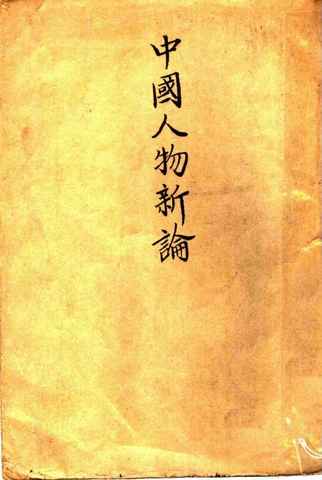 中國人物新論